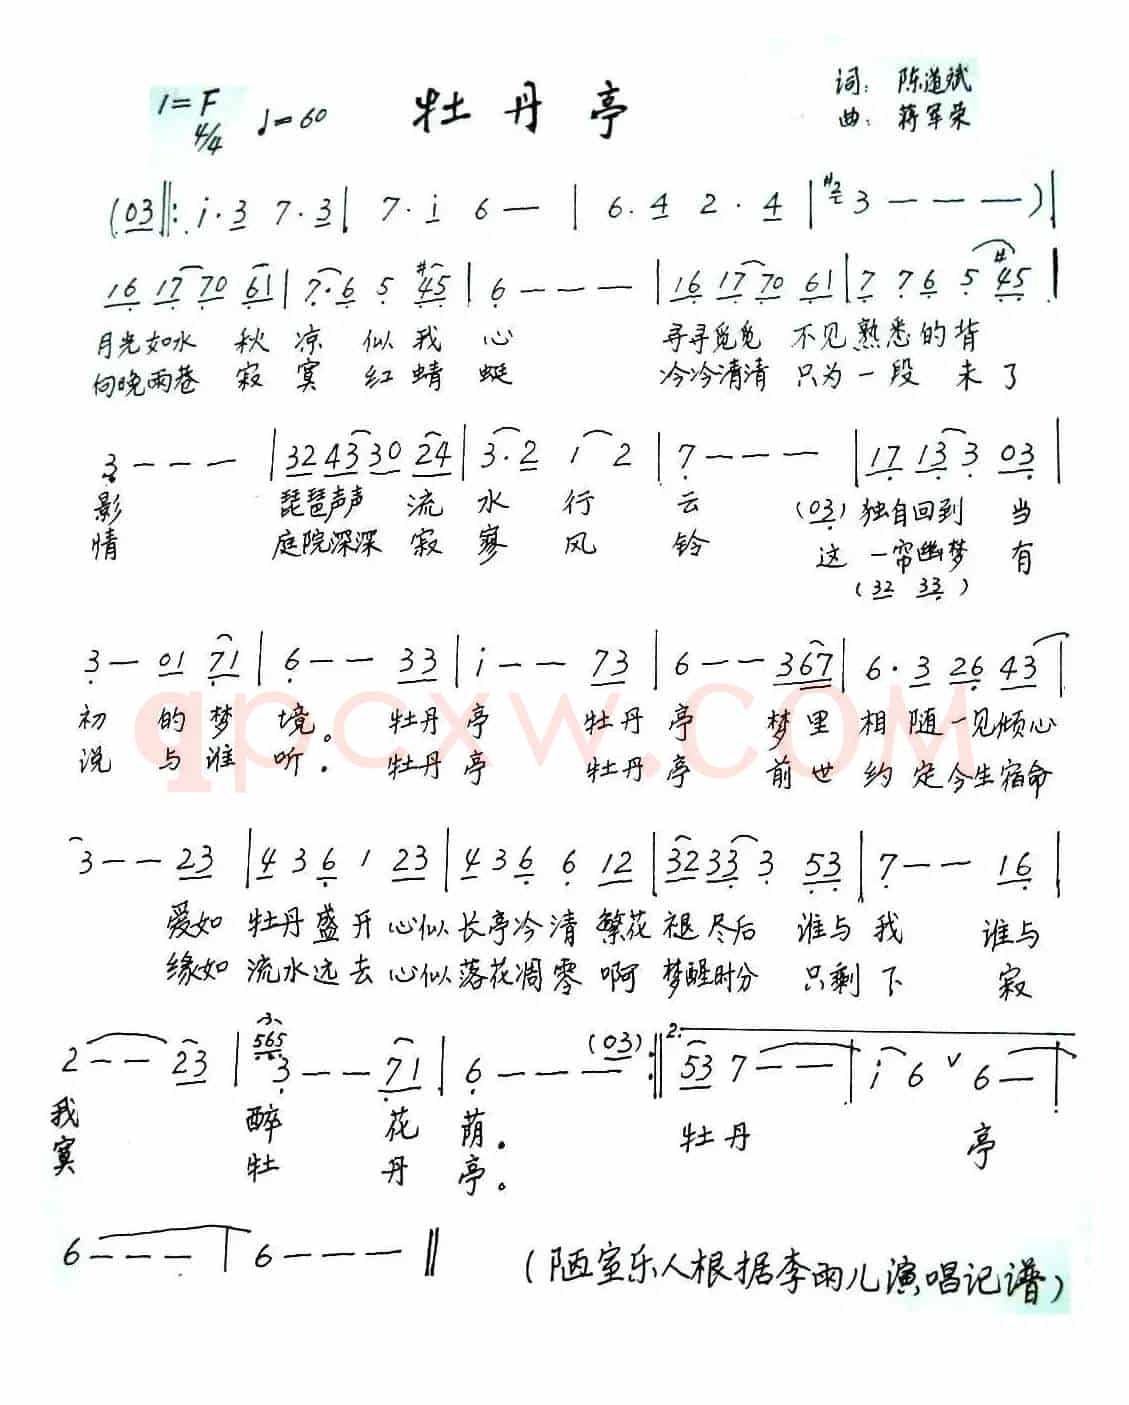 1=F 4/4 ♩=60 牡丹亭 词：陈道斌
曲：蒋军荣
(03‖: i·3 7·3 | 7·i 6— | 6·4 2·4 | #2 3———)|
16 17 70 61 | 7·6 5 #45 | 6——— | 16 17 70 61 | 7 76 5 #45 |
月光如水 秋凉 似我 心 寻寻觅觅 不见熟悉的背
向晚雨巷 寂寞 红蜻 蜓 冷冷清清 只为一段 未了
3——— | 32 43 30 24 | 3·2 1 2 | 7——— | 17 13 3 03 |
影 琵琶声声 流水行云 (03) 独自回到 当
情 庭院深深 寂寥风铃 这 一帘幽梦 有
(32 33)
3— 01 71 | 6—— 33 | i—— 73 | 6—— 367 | 6·3 26 43 |
初 的梦 境。 牡丹亭 牡丹亭 梦里相随一见倾心
说 与谁 听。 牡丹亭 牡丹亭 前世约定今生宿命
3—— 23 | 4 3 6 1 23 | 4 3 6 6 12 | 32 33 3 53 | 7—— 16 |
爱如 牡丹盛开 心似长亭冷清 繁花褪尽后 谁与我 谁与
缘如 流水远去 心似落花凋零 啊 梦醒时分 只剩下 寂
2—— 23 | 565 3—— 71 | 6—— (03) :‖ 2. 53 7—— | i 6 ∨ 6— |
我 醉 花 荫。 牡丹 亭
寞 牡 丹 亭。
6——— | 6——— ‖ (陋室乐人根据李雨儿演唱记谱)
qpcxw.com